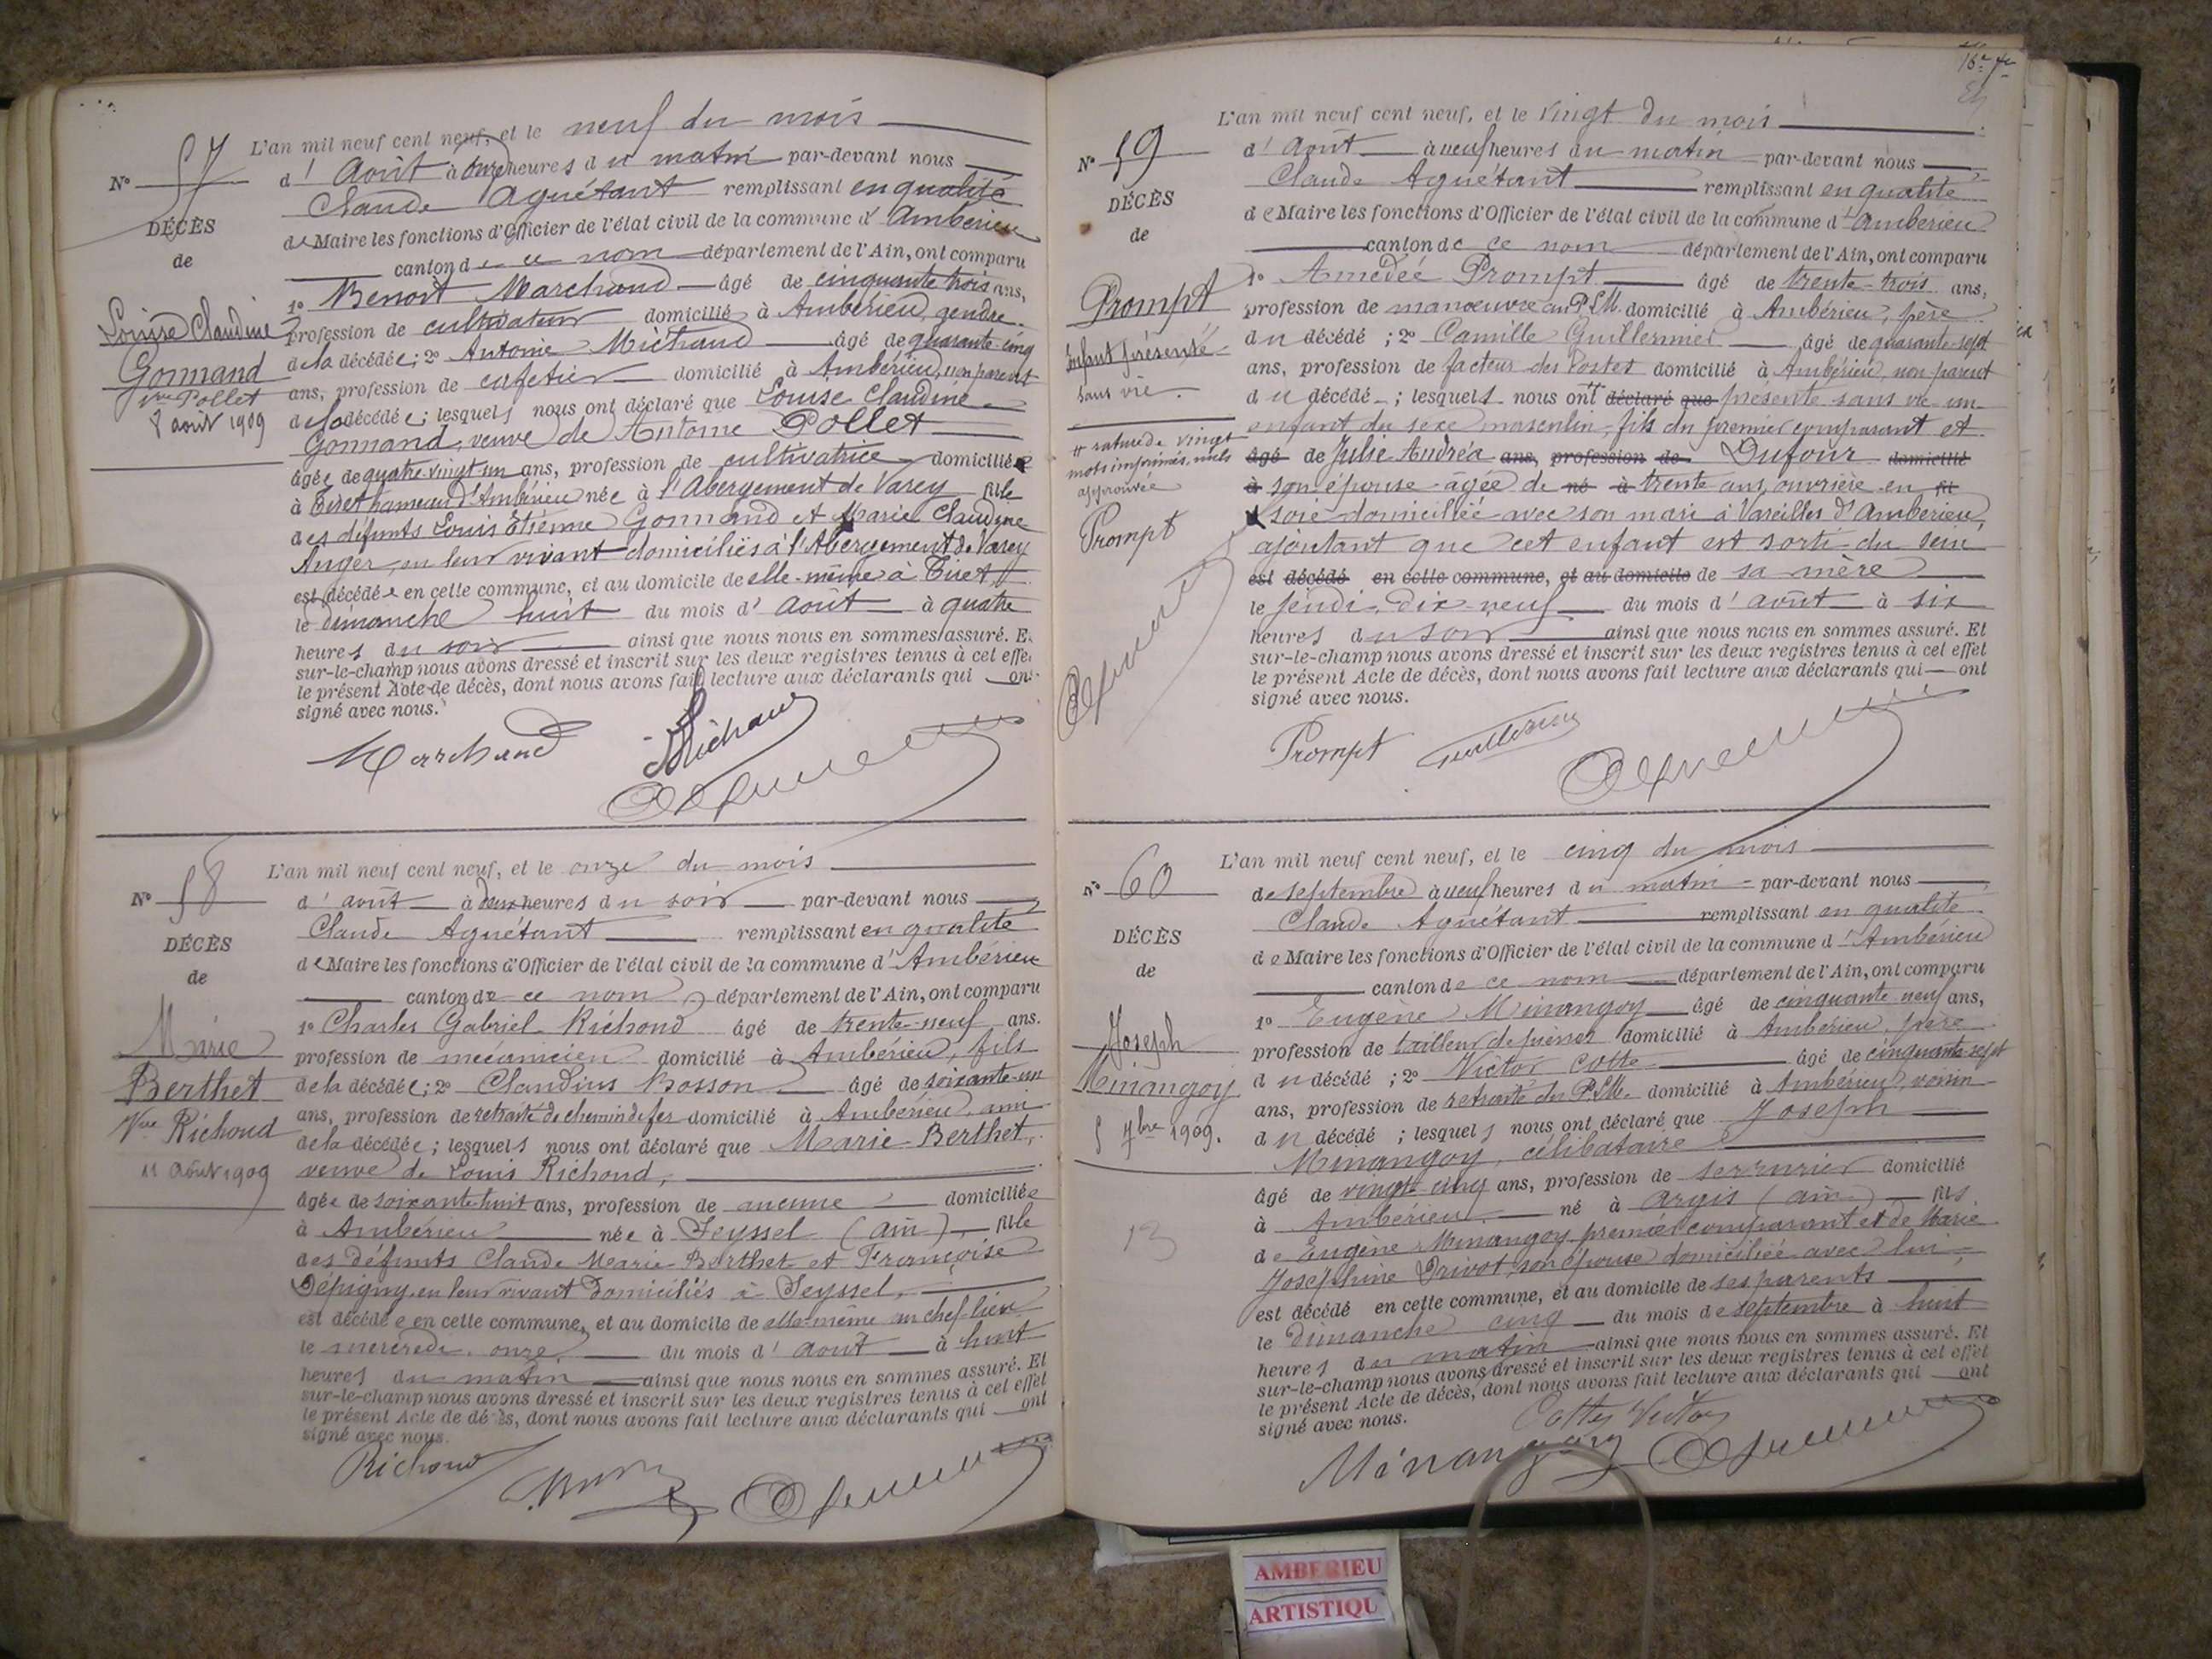 L'an mil neuf cent neuf, et le neuf du mois
N° 57
d'Août à onze heures du matin par-devant nous
Claude Aguétant remplissant en qualité
DÉCÈS
de Maire les fonctions d'Officier de l'état civil de la commune d'Ambérieu
de
canton de ce nom département de l'Ain, ont comparu
1° Benoit Marchand âgé de cinquante trois ans,
Louise Claudine
profession de cultivateur domicilié à Ambérieu, gendre
de la décédée; 2° Antoine Michaud âgé de quarante-cinq
Gonnand
ans, profession de cafetier domicilié à Ambérieu, non parent
vve Pollet
de la décédée; lesquels nous ont déclaré que Louise Claudine
8 août 1909
Gonnand, veuve de Antoine Pollet
âgée de quatre-vingt-un ans, profession de cultivatrice domiciliée
à Tiret hameau d'Ambérieu née à l'Abergement de Varey fille
des défunts Louis Etienne Gonnand et Marie Claudine
Anger, en leur vivant domiciliés à l'Abergement de Varey
est décédée en cette commune, et au domicile de elle-même à Tiret,
le dimanche huit du mois d'Août à quatre
heures du soir ainsi que nous nous en sommes assuré. E
sur-le-champ nous avons dressé et inscrit sur les deux registres tenus à cet effe
le présent Acte de décès, dont nous avons fait lecture aux déclarants qui ont
signé avec nous.
Marchand Michaud
L'an mil neuf cent neuf, et le onze du mois
N° 58
d'août à deux heures du soir par-devant nous
Claude Aguétant remplissant en qualité
DÉCÈS
de Maire les fonctions d'Officier de l'état civil de la commune d'Ambérieu
de
canton de ce nom département de l'Ain, ont comparu
1° Charles Gabriel Richond âgé de trente-neuf ans.
Marie
profession de mécanicien domicilié à Ambérieu, fils
Berthet
de la décédée; 2° Claudius Bosson âgé de soixante-un
ans, profession de retraité de chemin de fer domicilié à Ambérieu, ami
Vve Richond
de la décédée; lesquels nous ont déclaré que Marie Berthet,
11 Août 1909
veuve de Louis Richond,
âgée de soixante-huit ans, profession de aucune domiciliée
à Ambérieu née à Seyssel (Ain), fille
des défunts Claude Marie Berthet et Françoise
Dépigny, en leur vivant domiciliés à Seyssel,
est décédée en cette commune, et au domicile de elle-même au chef-lieu
le mercredi onze du mois d'août à huit
heures du matin ainsi que nous nous en sommes assuré. Et
sur-le-champ nous avons dressé et inscrit sur les deux registres tenus à cet effet
le présent Acte de décès, dont nous avons fait lecture aux déclarants qui ont
signé avec nous.
Richond
16e
L'an mil neuf cent neuf, et le vingt du mois
N° 59
d'août à neuf heures du matin par-devant nous
Claude Aguétant remplissant en qualité
DÉCÈS
de Maire les fonctions d'Officier de l'état civil de la commune d'Ambérieu
de
canton de ce nom département de l'Ain, ont comparu
1° Amédée Prompt âgé de trente-trois ans,
Prompt
profession de manœuvre au P.L.M. domicilié à Ambérieu, père
Enfant présenté
du décédé; 2° Camille Guillermier âgé de quarante-sept
ans, profession de facteur des Postes domicilié à Ambérieu, non parent
sans vie.
du décédé; lesquels nous ont déclaré que présenté sans vie un
enfant du sexe masculin, fils du premier comparant et
# rature de vingt
mots imprimés, nuls
approuvée
âgé de Julie Andréa ans, profession de Dufour domicilié
à son épouse âgée de né à trente ans, ouvrière en fil
Prompt
soie domiciliée avec son mari à Vareilles d'Ambérieu,
ajoutant que cet enfant est sorti du sein
est décédé en cette commune, et au domicile de sa mère
le jeudi dix-neuf du mois d'août à six
heures du soir ainsi que nous nous en sommes assuré. Et
sur-le-champ nous avons dressé et inscrit sur les deux registres tenus à cet effet
le présent Acte de décès, dont nous avons fait lecture aux déclarants qui ont
signé avec nous.
Prompt
L'an mil neuf cent neuf, et le cinq du mois
N° 60
de septembre à neuf heures du matin par-devant nous
Claude Aguétant remplissant en qualité
DÉCÈS
de Maire les fonctions d'Officier de l'état civil de la commune d'Ambérieu
de
canton de ce nom département de l'Ain, ont comparu
1° Eugène Minangoy âgé de cinquante-neuf ans,
Joseph
profession de tailleur de pierres domicilié à Ambérieu, père
Minangoy
du décédé; 2° Victor Cotte âgé de cinquante-sept
ans, profession de retraité du P.L.M. domicilié à Ambérieu, voisin
5 7bre 1909.
du décédé; lesquels nous ont déclaré que Joseph
Minangoy, célibataire
âgé de vingt-cinq ans, profession de serrurier domicilié
à Ambérieu né à Argis (Ain) fils
13
de Eugène Minangoy premier comparant et de Marie
Joséphine Drivot, son épouse domiciliée avec lui,
est décédé en cette commune, et au domicile de ses parents
le dimanche cinq du mois de septembre à huit
heures du matin ainsi que nous nous en sommes assuré. Et
sur-le-champ nous avons dressé et inscrit sur les deux registres tenus à cet effet
le présent Acte de décès, dont nous avons fait lecture aux déclarants qui ont
signé avec nous.
Cottes Victor
Minangoy
AMBERIEU
ARTISTIQU